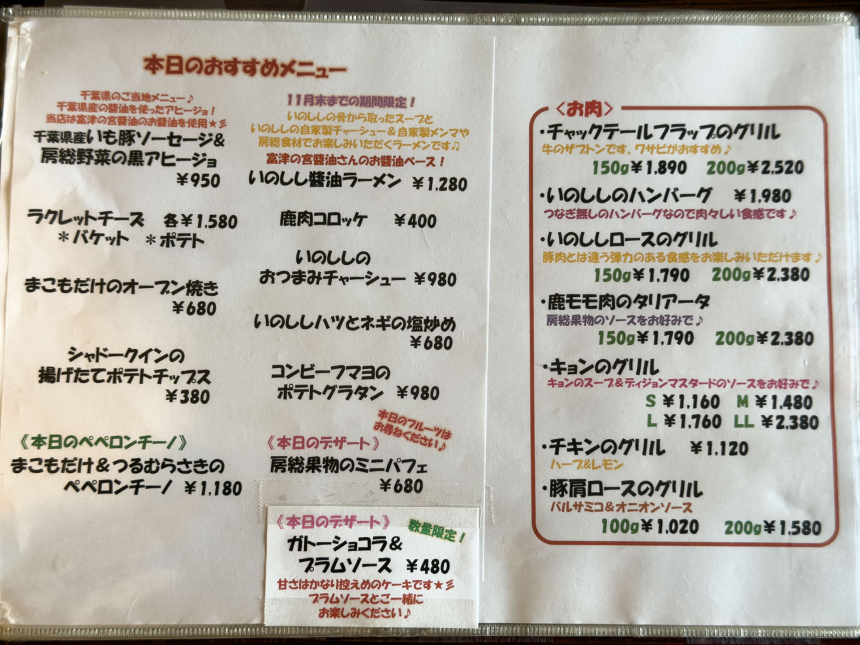 本日のおすすめメニュー
千葉県のご当地メニュー♪
千葉県産の醤油を使ったアヒージョ！
当店は富津の宮醤油のお醤油を使用★彡
千葉県産いも豚ソーセージ＆
房総野菜の黒アヒージョ
￥950
ラクレットチーズ 各￥1,580
＊バケット ＊ポテト
まこもだけのオーブン焼き
￥680
シャドークインの
揚げたてポテトチップス
￥380
《本日のペペロンチーノ》
まこもだけ＆つるむらさきの
ペペロンチーノ ￥1,180
11月末までの期間限定！
いのししの骨から取ったスープと
いのししの自家製チャーシュー＆自家製メンマや
房総食材でお楽しみいただくラーメンです♫
富津の宮醤油さんのお醤油ベース！
いのしし醤油ラーメン ￥1,280
鹿肉コロッケ ￥400
いのししの
おつまみチャーシュー ￥980
いのししハツとネギの塩炒め
￥680
コンビーフマヨの
ポテトグラタン ￥980
本日のフルーツは
お尋ねください♪
《本日のデザート》
房総果物のミニパフェ
￥680
《本日のデザート》 数量限定！
ガトーショコラ＆
プラムソース ￥480
甘さはかなり控えめのケーキです★彡
プラムソースとご一緒に
お楽しみください♪
〈お肉〉
・チャックテールフラップのグリル
牛のザブトンです。ワサビがおすすめ♪
150g￥1,890 200g￥2,520
・いのししのハンバーグ ￥1,980
つなぎ無しのハンバーグなので肉々しい食感です♪
・いのししロースのグリル
豚肉とは違う弾力のある食感をお楽しみいただけます♪
150g￥1,790 200g￥2,380
・鹿モモ肉のタリアータ
房総果物のソースをお好みで♪
150g￥1,790 200g￥2,380
・キョンのグリル
キョンのスープ＆ディジョンマスタードのソースをお好みで♪
S ￥1,160 M ￥1,480
L ￥1,760 LL ￥2,380
・チキンのグリル ￥1,120
ハーブ&レモン
・豚肩ロースのグリル
バルサミコ＆オニオンソース
100g￥1,020 200g￥1,580